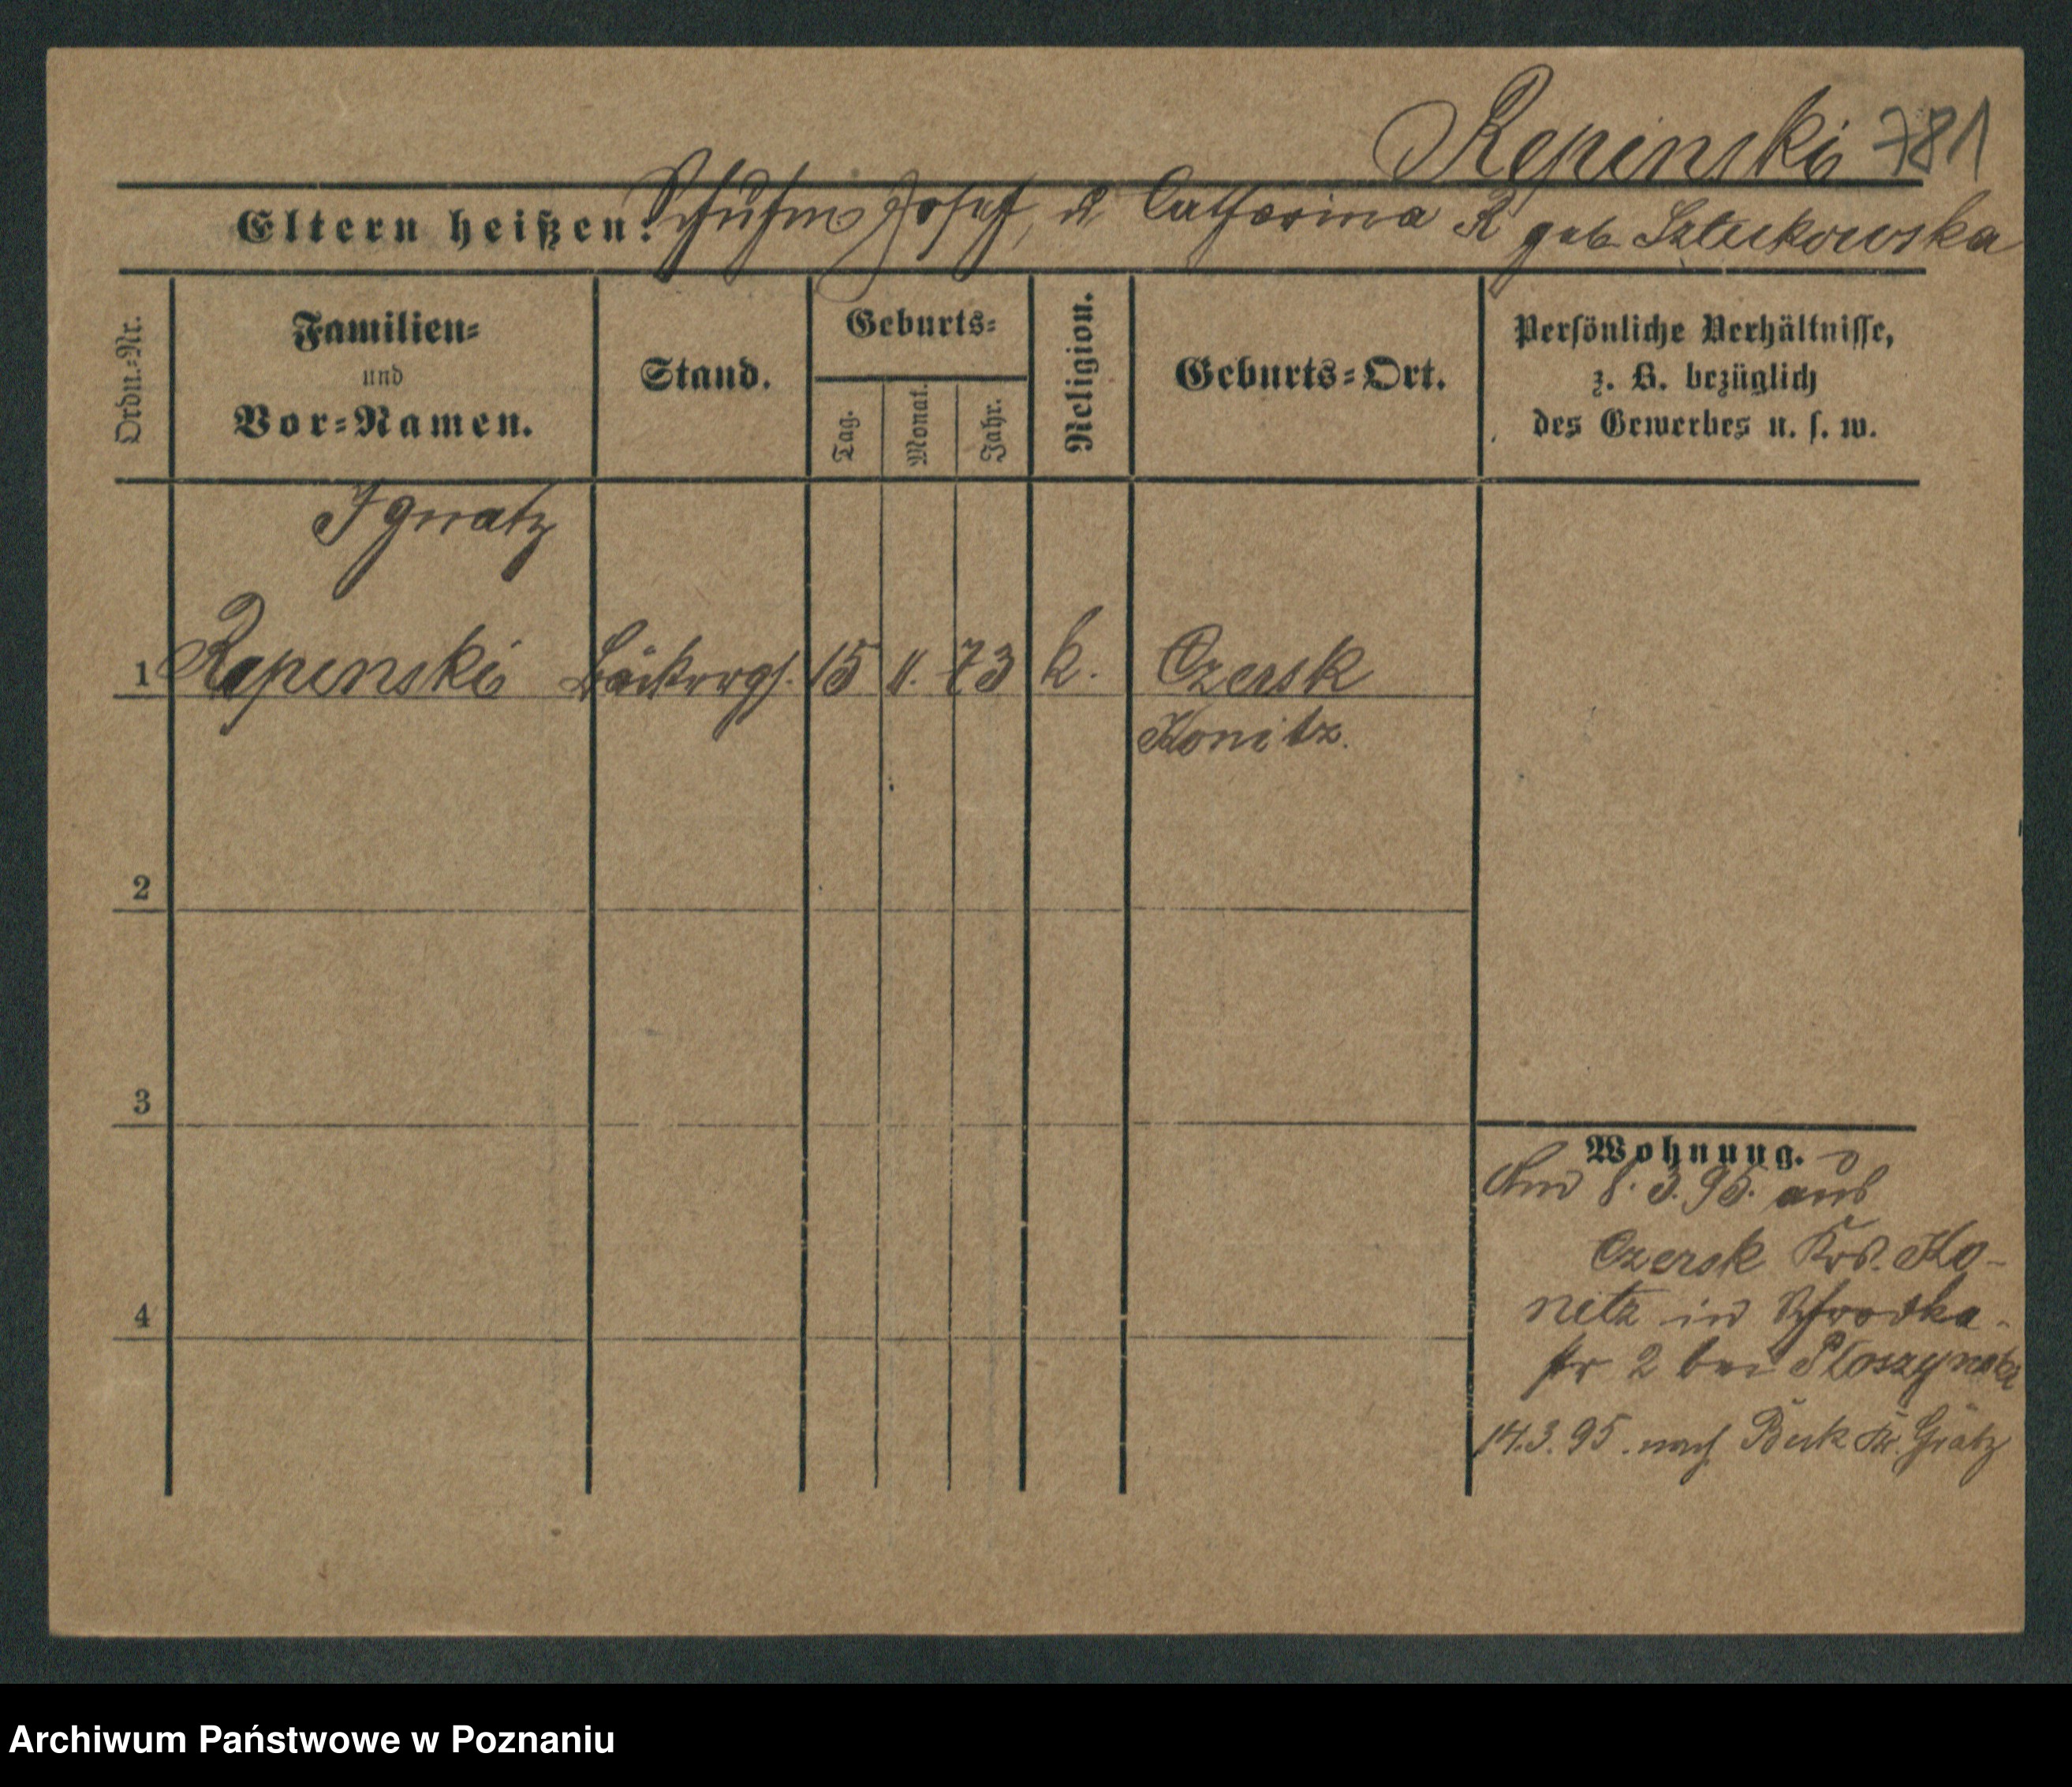 Repinski 781
Eltern heißen: Schuhm Josef, u Catharina R geb Sztukowska
Ordn.-Nr.
Familien-
und
Vor-Namen.
Stand.
Geburts-
Tag.
Monat.
Jahr.
Religion.
Geburts-Ort.
Persönliche Verhältnisse,
z. B. bezüglich
des Gewerbes u. s. w.
Ignatz
1 Repinski Bäckerges. 15 11. 73 k. Czersk
Konitz.
2
3
4
Wohnung.
8.3.95. aus
Czersk Krs. Ko-
nitz in Schrodka-
str 2 bei Ploszynski
14.3.95. nach Buk Kr. Grätz
Archiwum Państwowe w Poznaniu